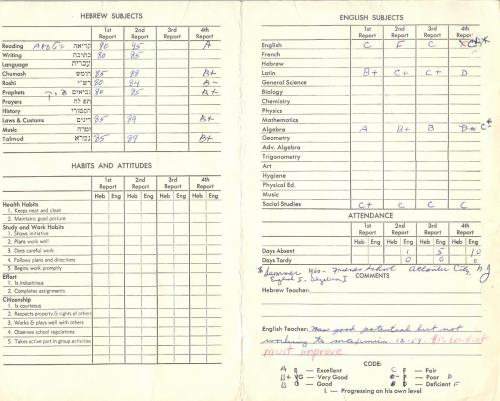 HEBREW SUBJECTS
1st Report 2nd Report 3rd Report 4th Report
Reading קריאה 90 95 A
Writing כתיבה 80 85
Language עברית
Chumash חומש 85 88 B+
Rashi רש"י 80 84 A-
Prophets נביאים 80 85 B+
Prayers תפלה
History
Laws & Customs דינים 85 89 B+
Music זמרה
Talmud גמרא 85 89 B+
HABITS AND ATTITUDES
1st Report 2nd Report 3rd Report 4th Report
Heb Eng Heb Eng Heb Eng Heb Eng
Health Habits
1. Keeps neat and clean
2. Maintains good posture
Study and Work Habits
1. Shows initiative
2. Plans work well
3. Does careful work
4. Follows plans and directions
5. Begins work promptly
Effort
1. Is industrious
2. Completes assignments
Citizenship
1. Is courteous
2. Respects property & rights of others
3. Works & plays well with others
4. Observes school regulations
5. Takes active part in group activities
ENGLISH SUBJECTS
1st Report 2nd Report 3rd Report 4th Report
English C F C
French
Hebrew
Latin B+ C+ C+ D
General Science
Biology
Chemistry
Physics
Mathematics
Algebra A B+ B D* C*
Geometry
Adv. Algebra
Trigonometry
Art
Hygiene
Physical Ed.
Music
Social Studies C+ C C C
ATTENDANCE
1st Report 2nd Report 3rd Report 4th Report
Heb Eng Heb Eng Heb Eng Heb Eng
Days Absent 1 5 10
Days Tardy 0 0 0
* Summer 1960 - Friends School Atlantic City, NJ
English I - Algebra I
COMMENTS
Hebrew Teacher:
English Teacher: Has good potential but not
working to maximum 12-59. His conduct
must improve
CODE:
A - Excellent C F - Fair
B+ VG - Very Good P - Poor D
B G - Good D - Deficient F
L - Progressing on his own level